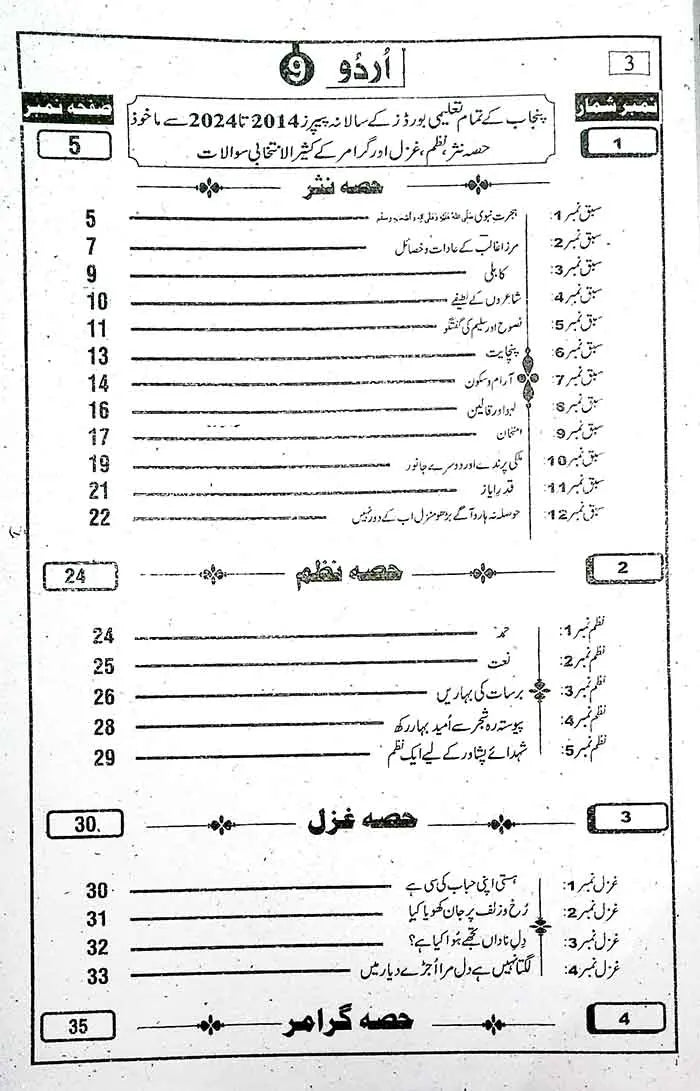 3
اُردُو 9
نمبر شمار
صفحہ نمبر
پنجاب کے تمام تعلیمی بورڈز کے سالانہ پیپرز 2014 تا 2024 سے ماخوذ
حصہ نثر، نظم، غزل اور گرامر کے کثیر الانتخابی سوالات
1
5
حصہ نثر
سبق نمبر 1: ہجرت نبوی صَلَّی اللہُ عَلَیْہِ وَعَلٰی آلِہٖ وَاَصْحَابِہٖ وَسَلَّم 5
سبق نمبر 2: مرزا غالب کے عادات و خصائل 7
سبق نمبر 3: کاہلی 9
سبق نمبر 4: شاعروں کے لطیفے 10
سبق نمبر 5: نصوح اور سلیم کی گفتگو 11
سبق نمبر 6: پنچایت 13
سبق نمبر 7: آرام و سکون 14
سبق نمبر 8: لہو اور قالین 16
سبق نمبر 9: امتحان 17
سبق نمبر 10: ملکی پرندے اور دوسرے جانور 19
سبق نمبر 11: قدرِ ایاز 21
سبق نمبر 12: حوصلہ نہ ہارو آگے بڑھو منزل اب کے دور نہیں 22
2 حصہ نظم 24
نظم نمبر 1: حمد 24
نظم نمبر 2: نعت 25
نظم نمبر 3: برسات کی بہاریں 26
نظم نمبر 4: پیوستہ رہ شجر سے اُمید بہار رکھ 28
نظم نمبر 5: شہدائے پشاور کے لیے ایک نظم 29
3 حصہ غزل 30.
غزل نمبر 1: ہستی اپنی حباب کی سی ہے 30
غزل نمبر 2: رُخ و زلف پر جان کھویا کیا 31
غزل نمبر 3: دِل ناداں تجھے ہُوا کیا ہے؟ 32
غزل نمبر 4: لگتا نہیں ہے دل مرا اُجڑے دیار میں 33
4 حصہ گرامر 35